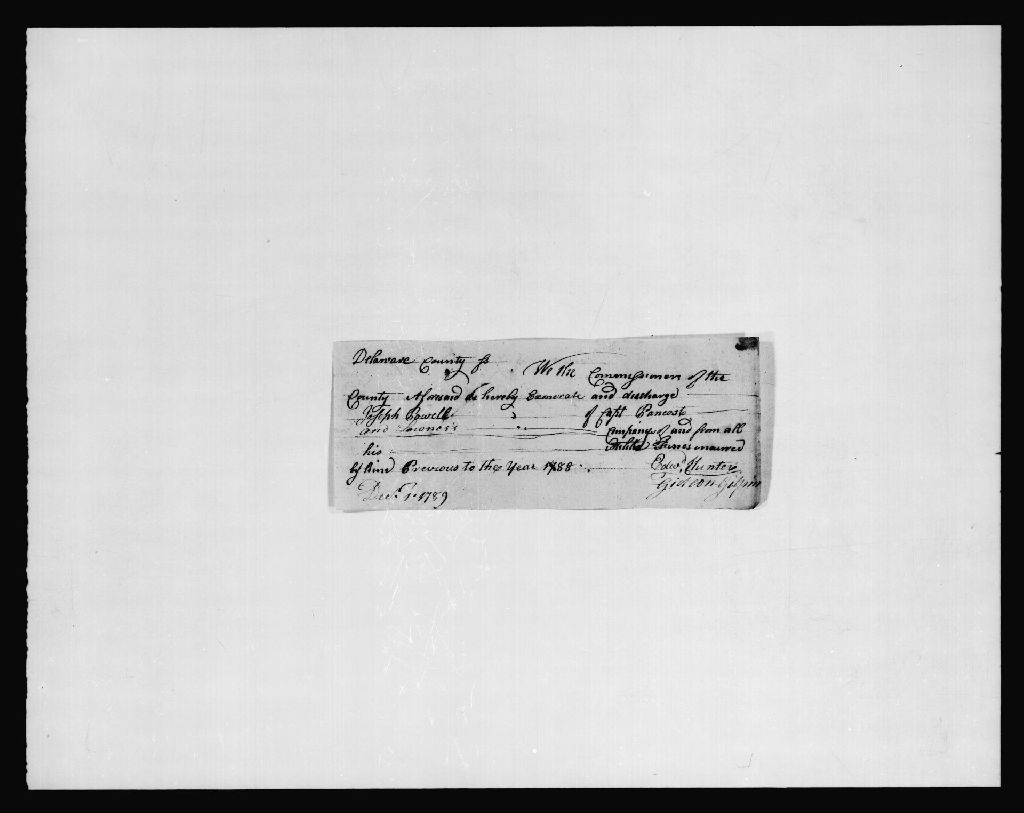 Delaware County ss. We the Commissioners of the
County Aforesaid do hereby Exonerate and discharge
Joseph Powell of Capt Pancost
and Company of and from all
his Militia Fines incurred
by him Previous to the Year 1788
Edwd. Hunter
Gideon Gilpin
Decr. 1. 1789